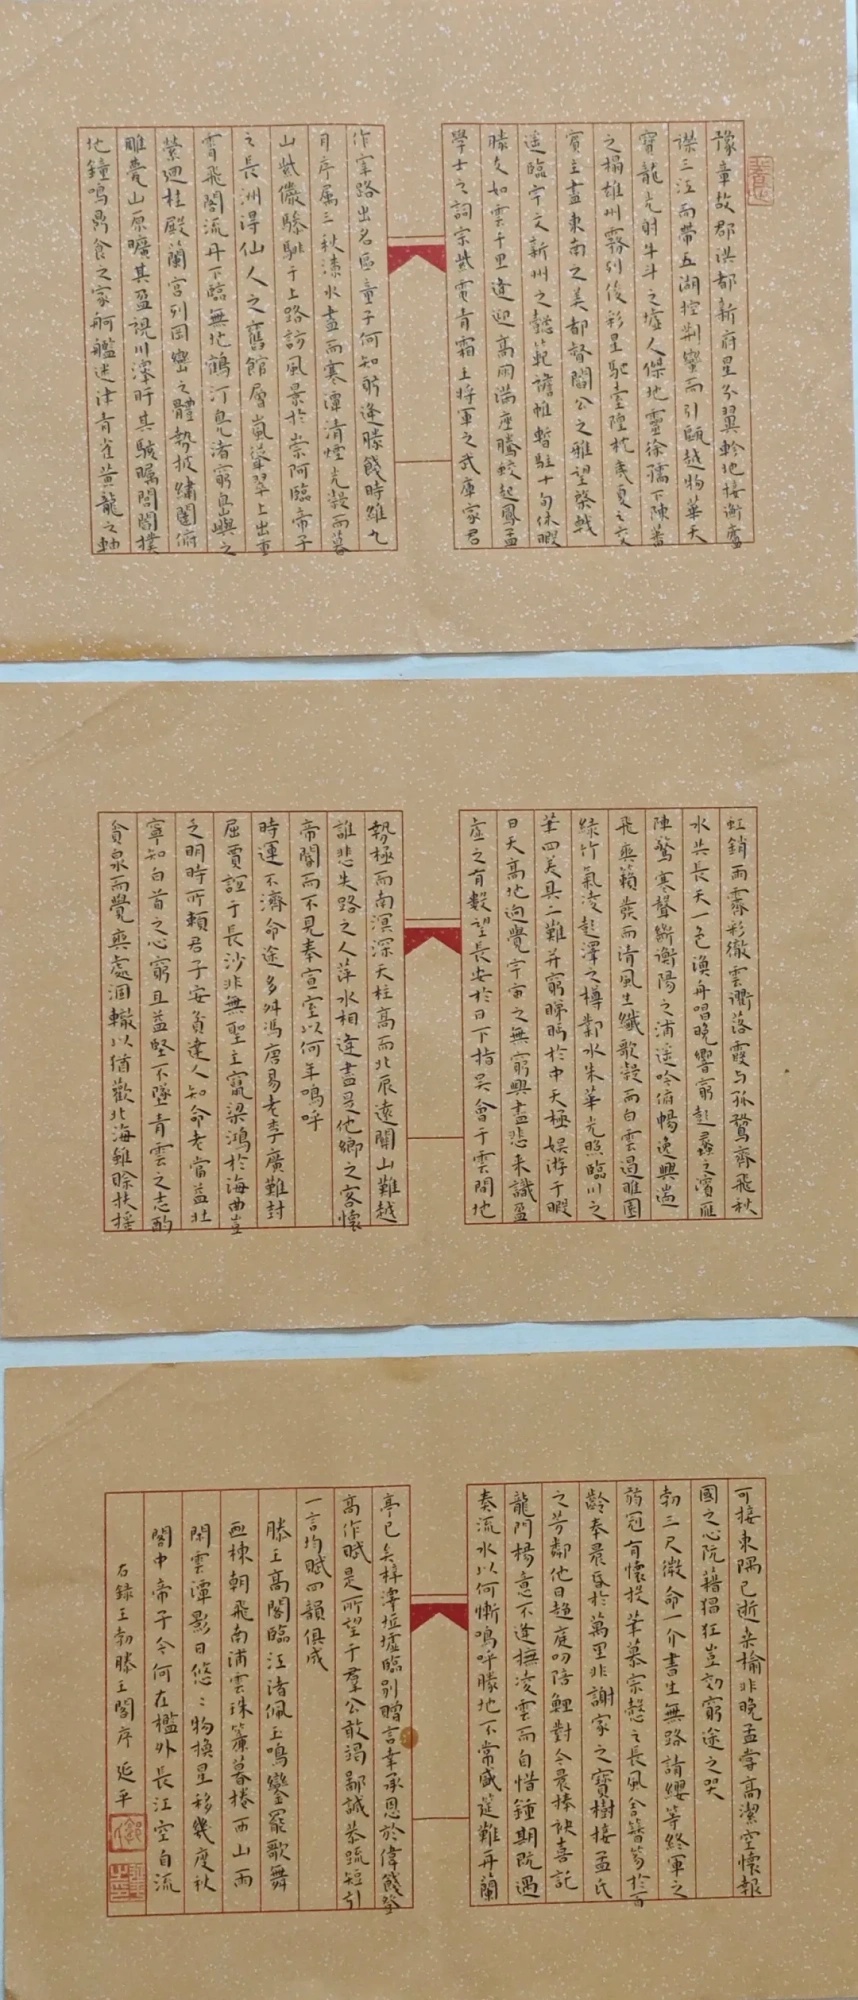 豫章故郡洪都新府星分翼軫地接衡廬
襟三江而帶五湖控荊蠻而引甌越物華天
寶龍光射牛斗之墟人傑地靈徐孺下陳蕃
之榻雄州霧列俊彩星馳臺隍枕夷夏之交
賓主盡東南之美都督閻公之雅望棨戟
遥臨宇文新州之懿範襜帷暫駐十旬休暇
勝友如雲千里逢迎高朋滿座騰蛟起鳳孟
學士之詞宗紫電青霜王將軍之武庫家君
作宰路出名區童子何知躬逢勝餞時維九
月序屬三秋潦水盡而寒潭清煙光凝而暮
山紫儼驂騑于上路訪風景於崇阿臨帝子
之長洲得仙人之舊館層嵐聳翠上出重
霄飛閣流丹下臨無地鶴汀鳧渚窮島嶼之
縈迴桂殿蘭宮列岡巒之體勢披繡闥俯
雕甍山原曠其盈視川澤盱其駭矚閭閻撲
地鐘鳴鼎食之家舸艦迷津青雀黃龍之軸
虹銷雨霽彩徹雲衢落霞与孤鶩齊飛秋
水共長天一色漁舟唱晚響窮彭蠡之濱雁
陣驚寒聲斷衡陽之浦遥吟俯暢逸興遄
飛爽籟發而清風生纖歌凝而白雲遏睢園
綠竹氣凌彭澤之樽鄴水朱華光照臨川之
筆四美具二難并窮睇眄於中天極娛游于暇
日天高地迥覺宇宙之無窮興盡悲来識盈
虛之有數望長安於日下指吳會于雲間地
勢極而南溟深天柱高而北辰遠關山難越
誰悲失路之人萍水相逢盡是他鄉之客懷
帝閽而不見奉宣室以何年嗚呼
時運不濟命途多舛馮唐易老李廣難封
屈賈誼于長沙非無聖主竄梁鴻於海曲豈
乏明時所賴君子安貧達人知命老當益壯
寧知白首之心窮且益堅不墜青雲之志酌
貪泉而覺爽處涸轍以猶歡北海雖賒扶搖
可接東隅已逝桑榆非晚孟嘗高潔空懷報
國之心阮藉猖狂豈効窮途之哭
勃三尺微命一介書生無路請纓等終軍之
弱冠有懷投筆慕宗慤之長風舍簪笏於百
齡奉晨昏於萬里非謝家之寶樹接孟氏
之芳鄰他日趨庭叨陪鯉對今晨捧袂喜託
龍門楊意不逢撫凌雲而自惜鍾期既遇
奏流水以何慚嗚呼勝地不常盛筵難再蘭
亭已矣梓澤垃墟臨別贈言幸承恩於偉餞登
高作賦是所望于羣公敢竭鄙誠恭疏短引
一言均賦四韻俱成
滕王高閣臨江渚佩玉鳴鑾罷歌舞
画棟朝飛南浦雲珠簾暮捲西山雨
閑雲潭影日悠〻物換星移幾度秋
閣中帝子今何在檻外長江空自流
右錄王勃滕王閣序 延平